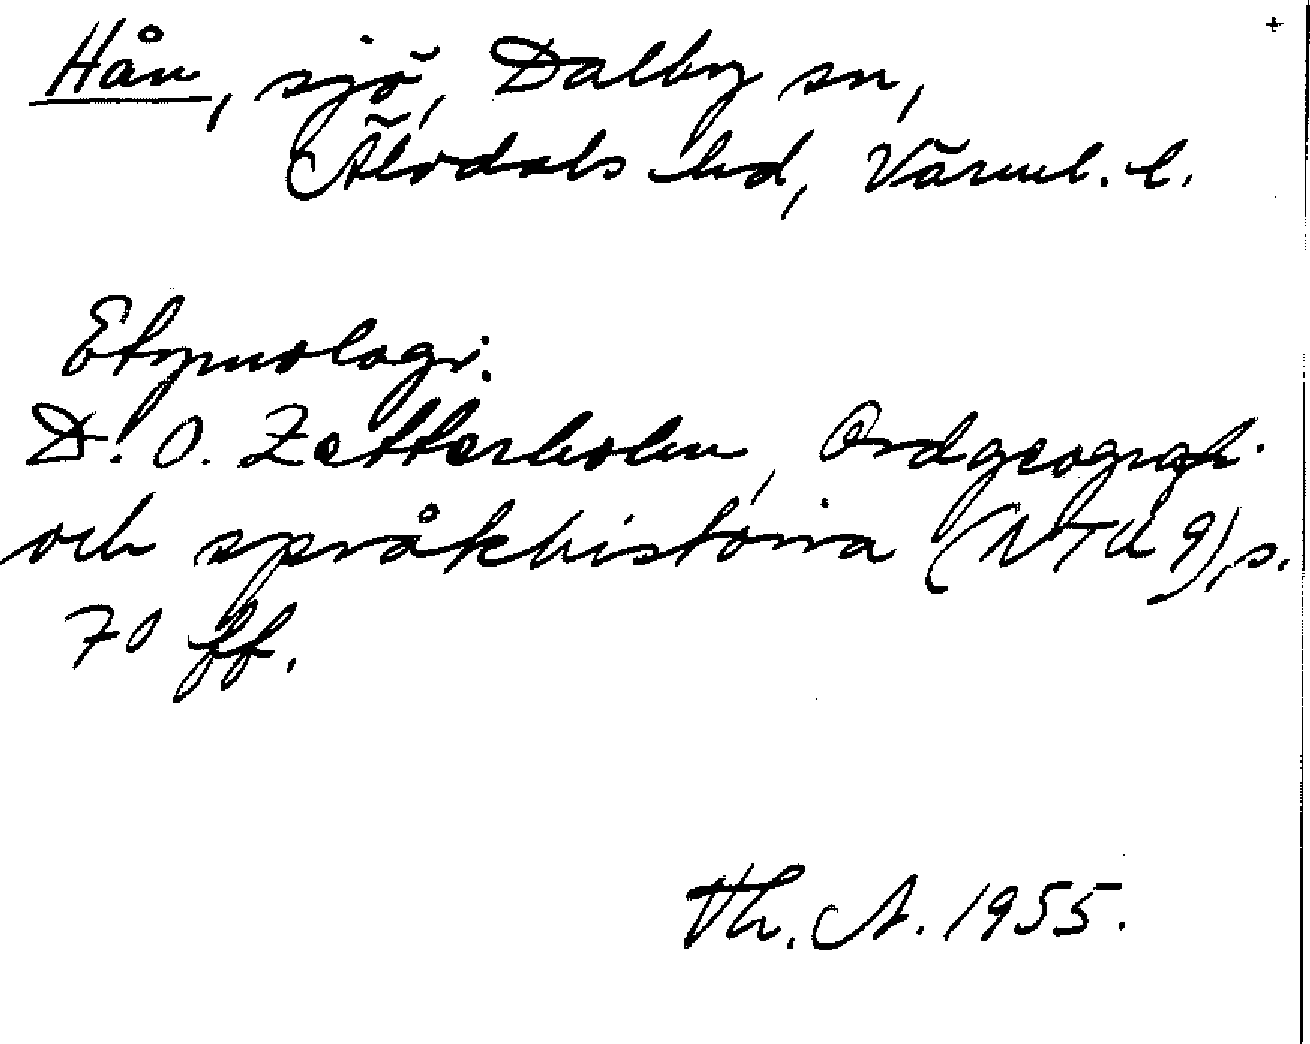 +
Hån, sjö, Dalby sn,
Älvdals hd, Värml. l.
Etymologi:
D. O. Zetterholm, Ordgeografi
och språkhistoria (NTU 9), s.
70 ff.
Th. A. 1955.